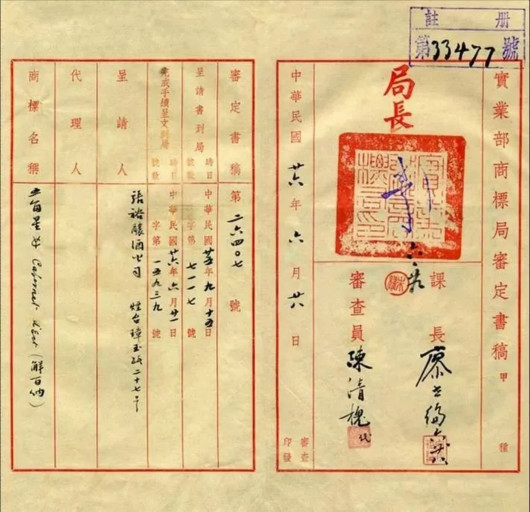 註冊
第33477號
實業部商標局審定書稿 甲種
課長 廖
審查員 陳清槐 代
局長
六
中華民國 廿六年 六月 廿八日
審查印發
審定書稿第 二六四〇七 號
呈請書到局 時日 中華民國廿五年九月十五日
號數 字第 七一一七 號
完成手續呈文到局 時日 中華民國廿六年六月廿一日
號數 字第 一五九三九 號
呈請人 張裕釀酒公司 煙台
代理人
商標名稱 Cabernet (解百納)